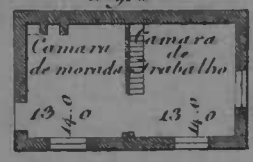 Camara
de morada
Camara
de
Trabalho
13
14.0
0
13
14.0
0